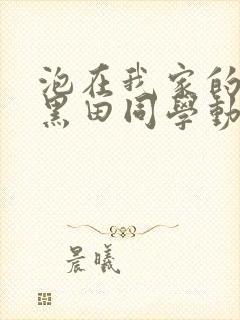 泡在我家的
黑田同學動
晨曦